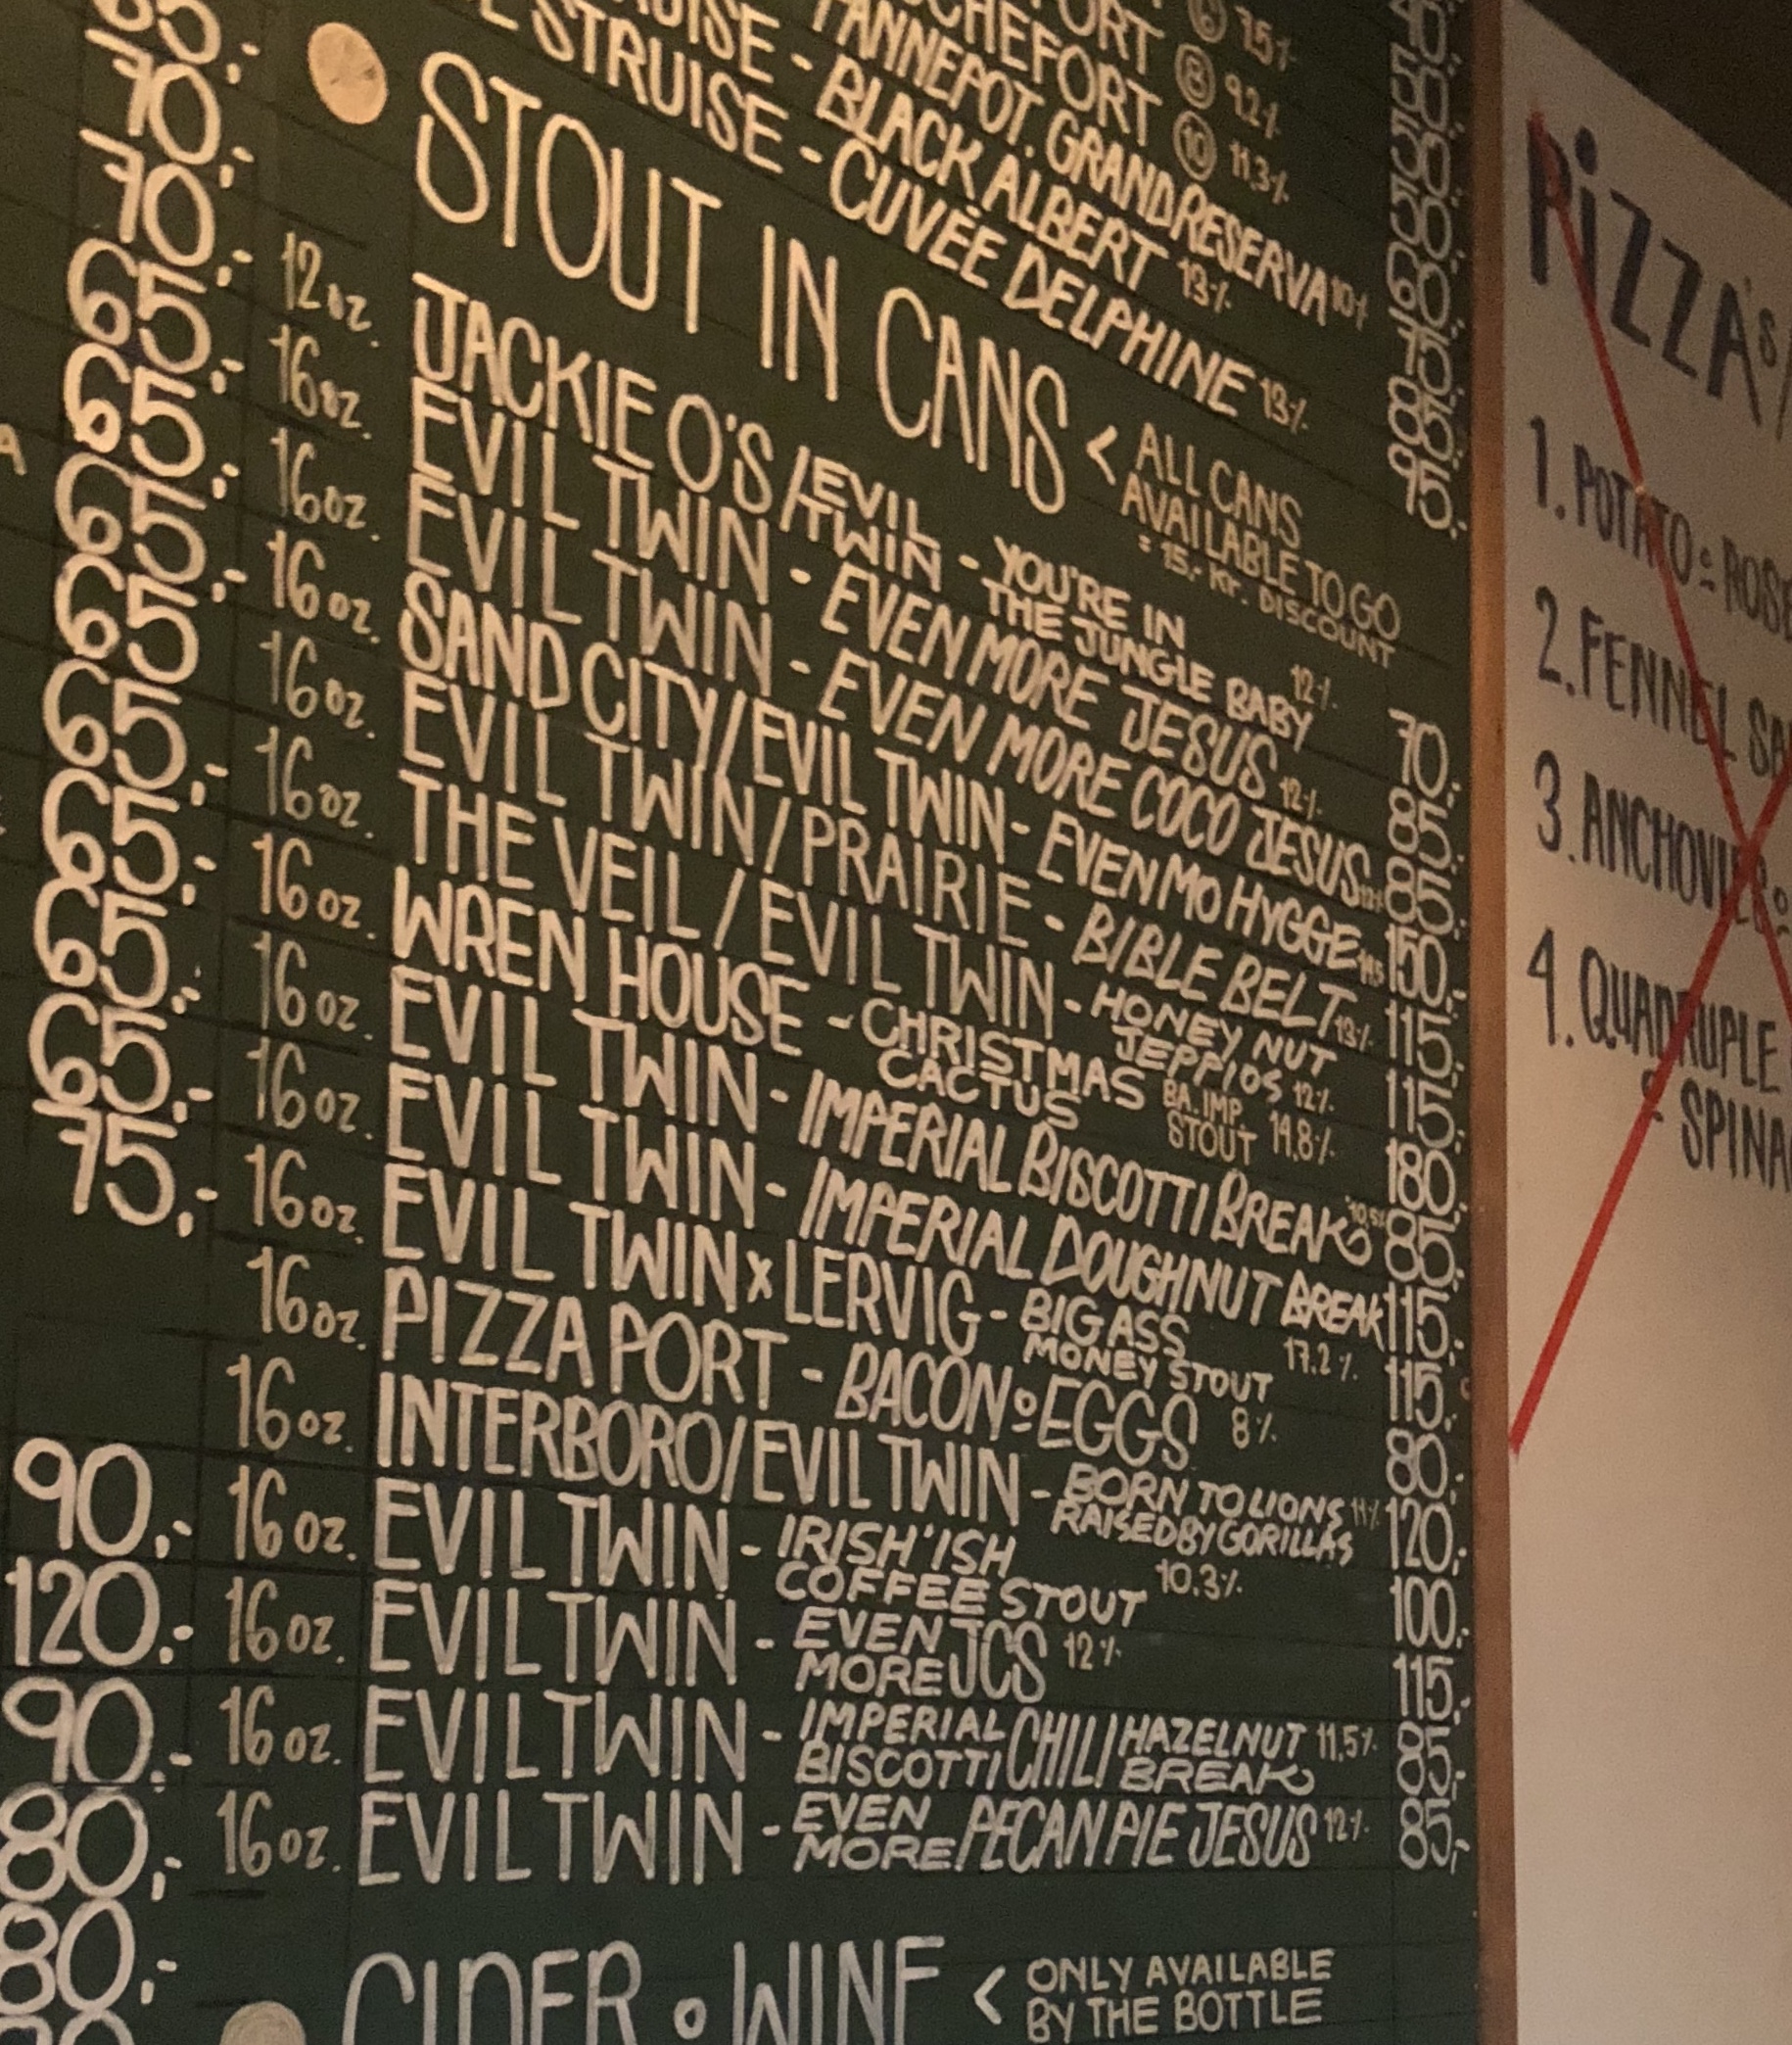 ORT ⑥ 7.5%
CHEFORT ⑧ 9.2%
⑩ 11.3%
PANNEPOT. GRAND RESERVA 10%
UISE - BLACK ALBERT 13%
STRUISE - CUVÉE DELPHINE 13% 95.-
STOUT IN CANS < ALL CANS
AVAILABLE TO GO
= 15,- Kr. DISCOUNT
12oz. JACKIE O'S / EVIL TWIN - YOU'RE IN THE JUNGLE BABY 12% 70.-
16oz. EVIL TWIN - EVEN MORE JESUS 12% 85.-
16oz. EVIL TWIN - EVEN MORE COCO JESUS 12% 85.-
16oz. SAND CITY/EVIL TWIN - EVEN MO HYGGE 150.-
16oz. EVIL TWIN / PRAIRIE - BIBLE BELT 13% 115.-
16oz. THE VEIL / EVIL TWIN - HONEY NUT JEPPIOS 12% 115.-
16oz. WREN HOUSE - CHRISTMAS CACTUS BA. IMP. STOUT 14,8% 180.-
16oz. EVIL TWIN - IMPERIAL BISCOTTI BREAK 10,5% 85.-
16oz. EVIL TWIN - IMPERIAL DOUGHNUT BREAK 115.-
16oz. EVIL TWIN x LERVIG - BIG ASS MONEY STOUT 17.2% 115.-
16oz. PIZZA PORT - BACON & EGGS 8% 80.-
16oz. INTERBORO/EVIL TWIN - BORN TO LIONS RAISED BY GORILLAS 11% 120.-
16oz. EVIL TWIN - IRISH'ISH COFFEE STOUT 10.3% 100.-
16oz. EVIL TWIN - EVEN MORE JCS 12% 115.-
16oz. EVIL TWIN - IMPERIAL BISCOTTI CHILI HAZELNUT BREAK 11,5% 85.-
16oz. EVIL TWIN - EVEN MORE PECAN PIE JESUS 12% 85,-
CIDER & WINE < ONLY AVAILABLE
BY THE BOTTLE
70,-
70,-
65,-
65,-
65,-
65,-
65,-
65,-
65,-
65,-
75,-
90,-
120,-
90,-
80,-
80,-
PiZZA's
1. POTATO & ROS
2. FENNEL SA
3. ANCHOVIES &
4. QUADRUPLE
& SPINA